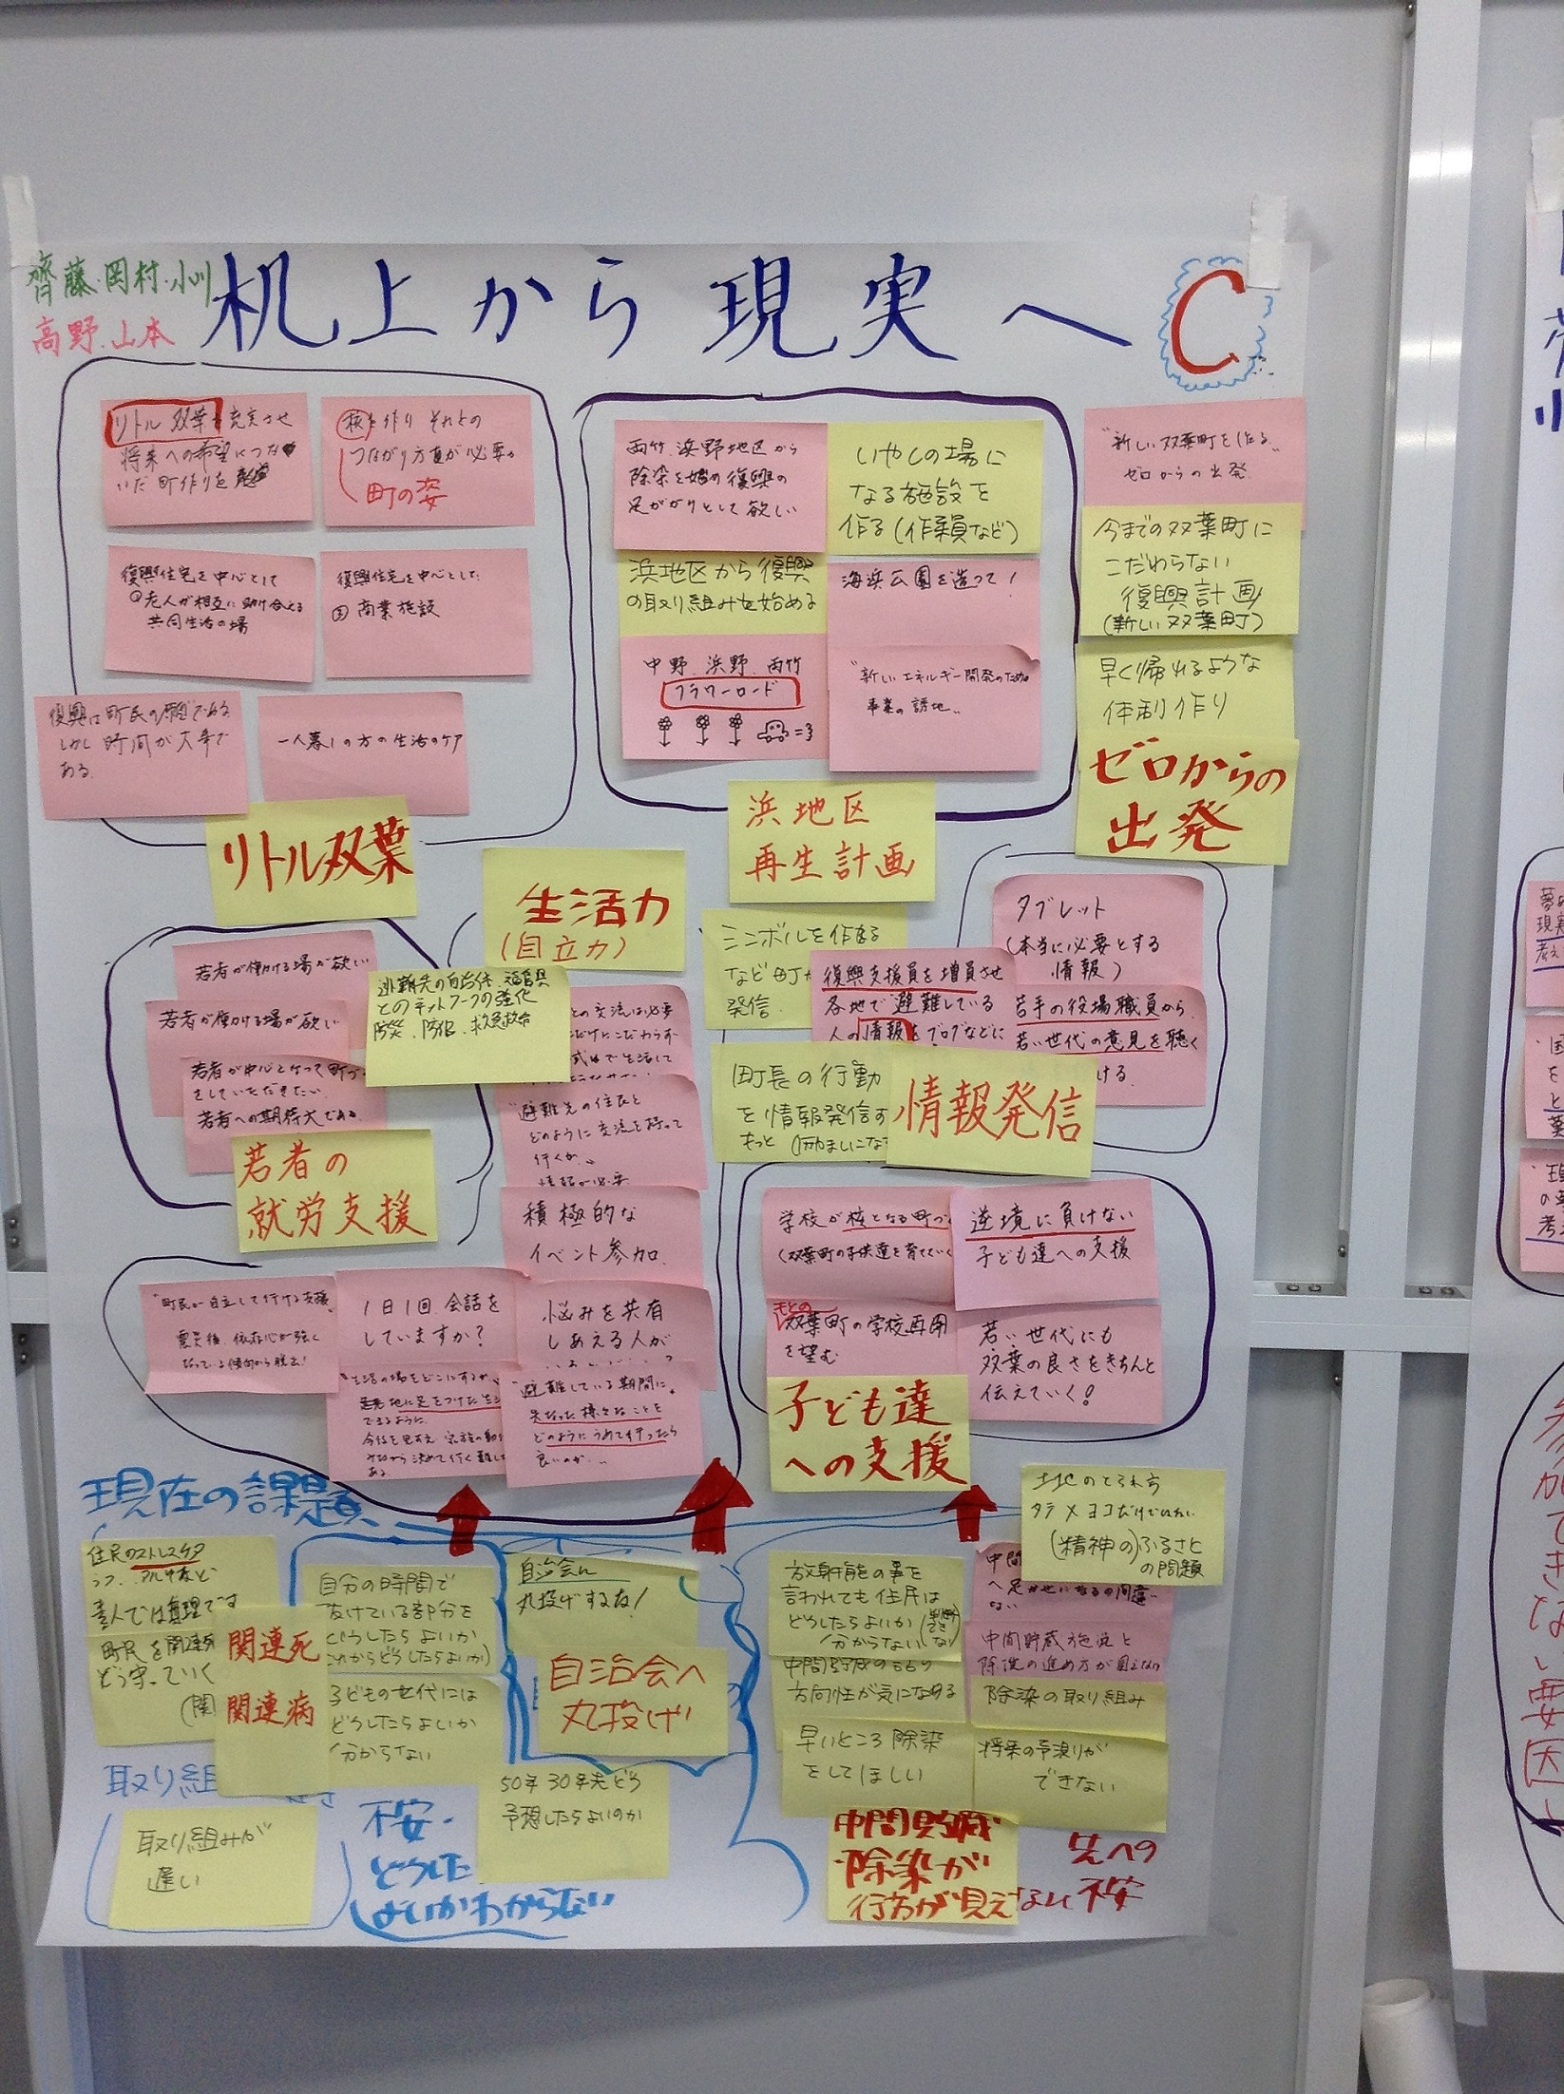 齊藤・岡村・小川
高野・山本
机上から現実へ
C
リトル双葉を充実させ
将来への希望につな
いだ町作りを
核を作り それとの
つながり方直が必要。
町の姿
復興住宅を中心として
①老人が相互に助け合える
共同生活の場
復興住宅を中心とした
② 商業施設
しかし時間が大事で
ある。
一人暮しの方の生活のケア
リトル双葉
両竹、浜野地区から
除染を始め復興の
足がかりとして欲しい
いやしの場に
なる施設を
作る(作業員など)
浜地区から復興
の取り組みを始める
海浜公園を造って!
中野 浜野 両竹
フラワーロード
"新しいエネルギー開発のための
事業の誘地"
浜地区
再生計画
"新しい双葉町を作る"
ゼロからの出発
今までの双葉町に
こだわらない
復興計画
(新しい双葉町)
早く帰れるような
体制作り
ゼロからの
出発
若者が働ける場が欲しい
若者が働ける場が欲しい
若者が中心となって町づ
をしていただきたい
若者への期待大である。
若者の
就労支援
生活力
(自立力)
避難先の自治体、福島県
とのネットワークの強化
防災、防犯、救急救命
との交流は必要
"避難先の住民と
どのように交流を持って
行くか"
情報が必要
積極的な
イベント参加
"町民が自立して行ける支援"
震災後、依存心が強く
なっている傾向から脱去!
1日1回、会話を
していますか?
悩みを共有
しあえる人が
生活の場をどこにするか、
地に足をつけた生
できるように
"避難している期間に
失なった様々なことを
どのようにうめて行ったら
良いのか…
シンボルを作る
など町が
発信
復興支援員を増員させ
各地で避難している
人の情報をブログなどに
タブレット
(本当に必要とする
情報)
若手の役場職員から
若い世代の意見を聴く
ける
町長の行動
を情報発信す
もっと (励ましにな
情報発信
学校が核となる町づ
(双葉町の子供達を育てていく
逆境に負けない
子ども達への支援
もとの
双葉町の学校再開
を望む
若い世代にも
双葉の良さをきちんと
伝えていく!
子ども達
への支援
現在の課題
住民のストレスケア
うつ、アル中など
素人では無理です
町民を関連死
どう守っていく
(関
関連死
関連病
自分の時間で
抜けている部分を
どうしたらよいか
これからどうしたらよいか)
子どもの世代には
どうしたらよいか
分からない
自治会に
丸投げするな!
自治会へ
丸投げ
50年30年先どう
予想したらよいのか
取り組
取り組みが
遅い
不安・
どうした
よいかわからない
放射能の事を
言われても住民は
どうしたらよいか
分からない
方向性が気になる
早いところ除染
をしてほしい
土地のとられ方
タテ×ヨコだけでいいか
(精神の)ふるさと
の問題
中間貯蔵施設と
除染の進め方が見えない
除染の取り組み
将来の予測りが
できない
中間貯蔵
除染が
行方が見えない
先への
不安
参加できない要因